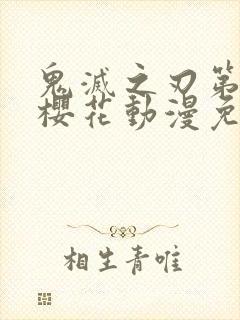 鬼滅之刃第
櫻花動漫免
相生青唯